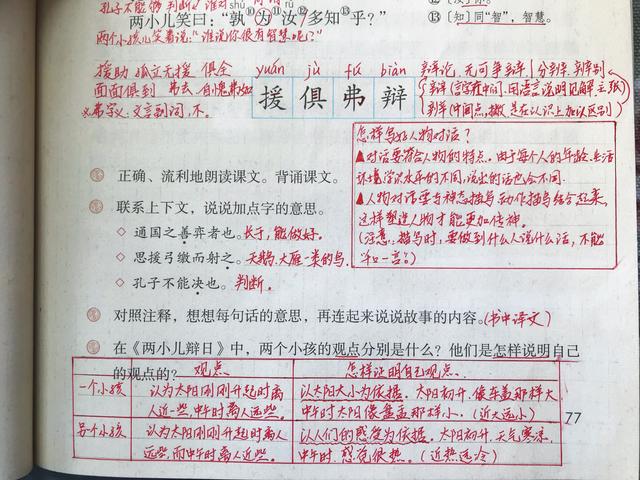 孔子不能够判断谁对
shú
两小儿笑曰：“孰⑪为⑫汝多知⑬乎？”
⑬〔知〕同“智”，智慧。
两个小孩儿笑着说：“谁说你很有智慧呢？”
援助 孤立无援 俱全
yuán jù fú biàn
辩论、无可争辩
分辨、辨别
面面俱到 弗去 自愧弗如
援俱弗辩
弗字义，文言副词，不。
怎样写好人物对话？
▲对话要符合人物的特点。由于每个人的年龄、生活
环境、学识水平的不同，说出的话也会不同。
▲人物对话要与神态描写、动作描写结合起来，
这样塑造人物才能更加传神。
（注意：描写时，要做到什么人说什么话，不能
千口一言。）
正确、流利地朗读课文。背诵课文。
联系上下文，说说加点字的意思。
◇ 通国之善弈者也。长于，能做好。
◇ 思援弓缴而射之。天鹅、大雁一类的鸟。
◇ 孔子不能决也。判断。
对照注释，想想每句话的意思，再连起来说说故事的内容。（书中译文）
在《两小儿辩日》中，两个小孩的观点分别是什么？他们是怎样说明自己
的观点的？
观点 怎样证明自己观点
一个小孩 认为太阳刚刚升起时离人近一些，中午时离人远些。 以太阳大小为依据。太阳初升，像车盖那样大，中午时太阳像盘盂那样小。（近大远小）
另个小孩 认为太阳刚刚升起时离人远些，而中午时离人近些。 以人们的感受为依据。太阳初升，天气寒凉，中午时，感觉很热。（近热远冷）
77